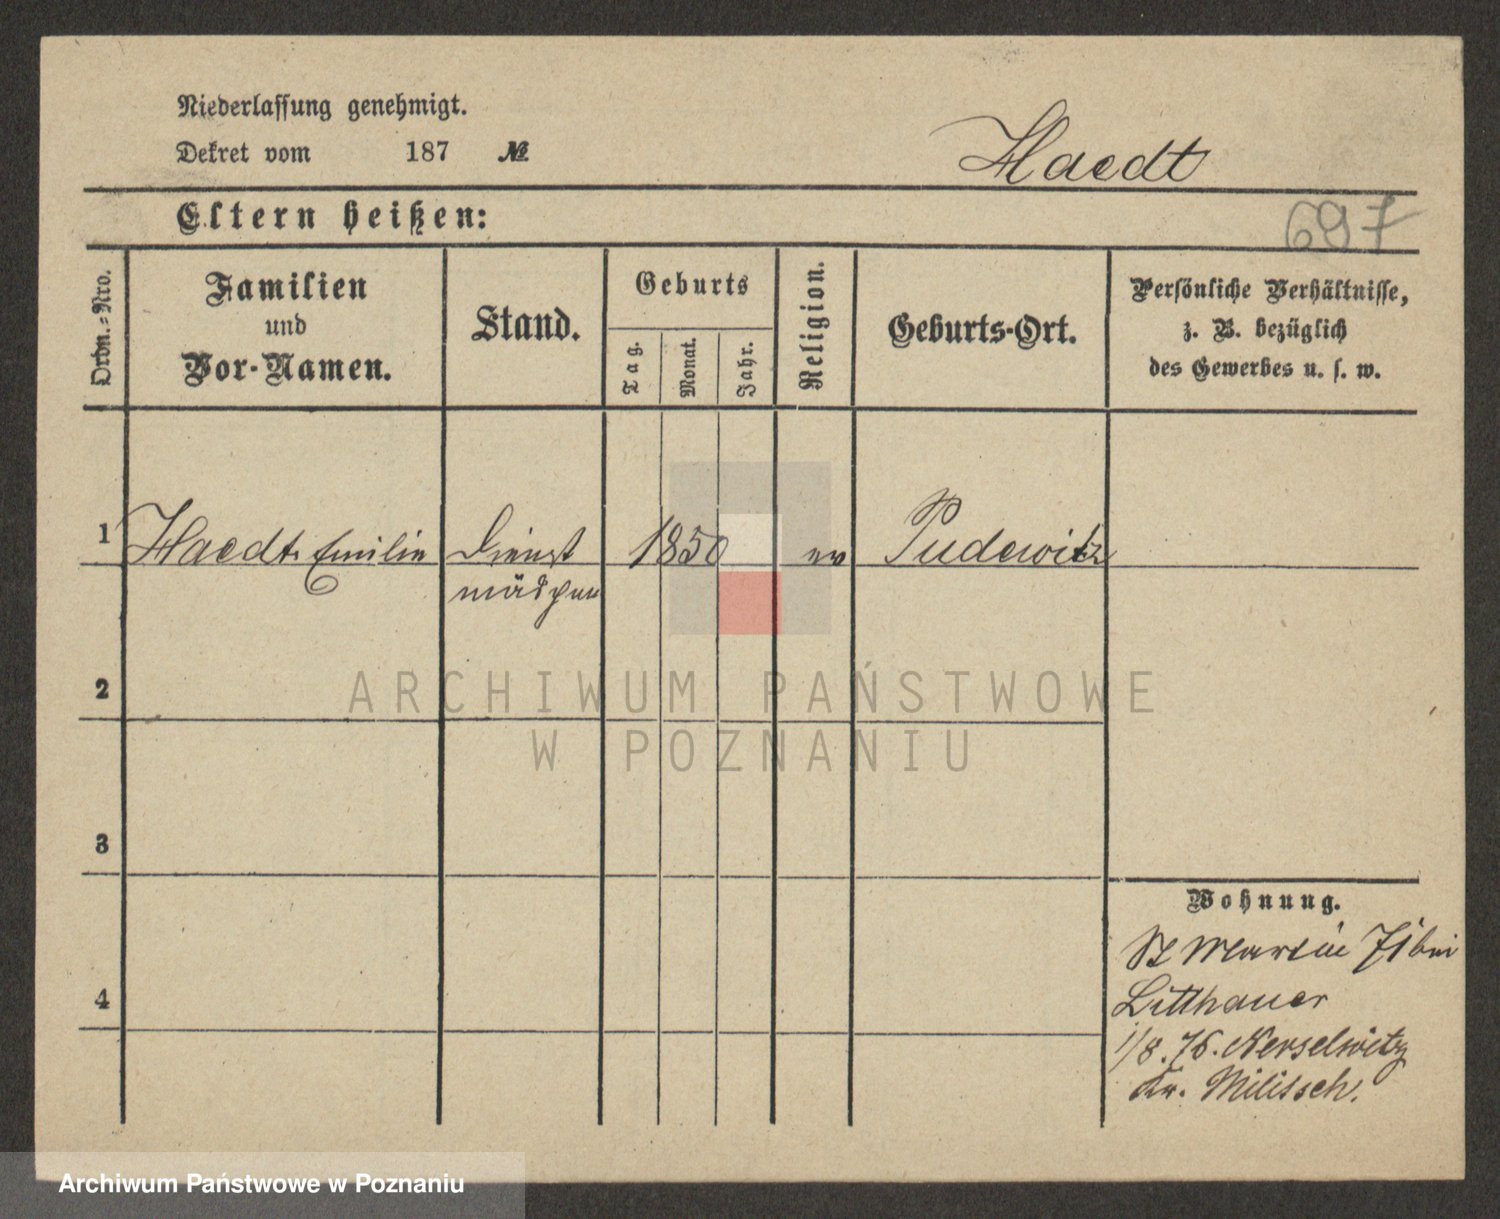 Niederlassung genehmigt.
Dekret vom 187 №
Haedt
Eltern heißen:
697
Ordn.-Nro.
Familien
und
Vor-Namen.
Stand.
Geburts
Tag.
Monat.
Jahr.
Religion.
Geburts-Ort.
Persönliche Verhältnisse,
z. B. bezüglich
des Gewerbes u. s. w.
1 Haedt Emilie Dienst 1850 ev Pudewitz
mädchen
ARCHIWUM PAŃSTWOWE
W POZNANIU
2
3
4
Wohnung.
St Martin 71 bei
Litthauer
1/8. 76. Nerselwitz
Kr. Militsch.
Archiwum Państwowe w Poznaniu